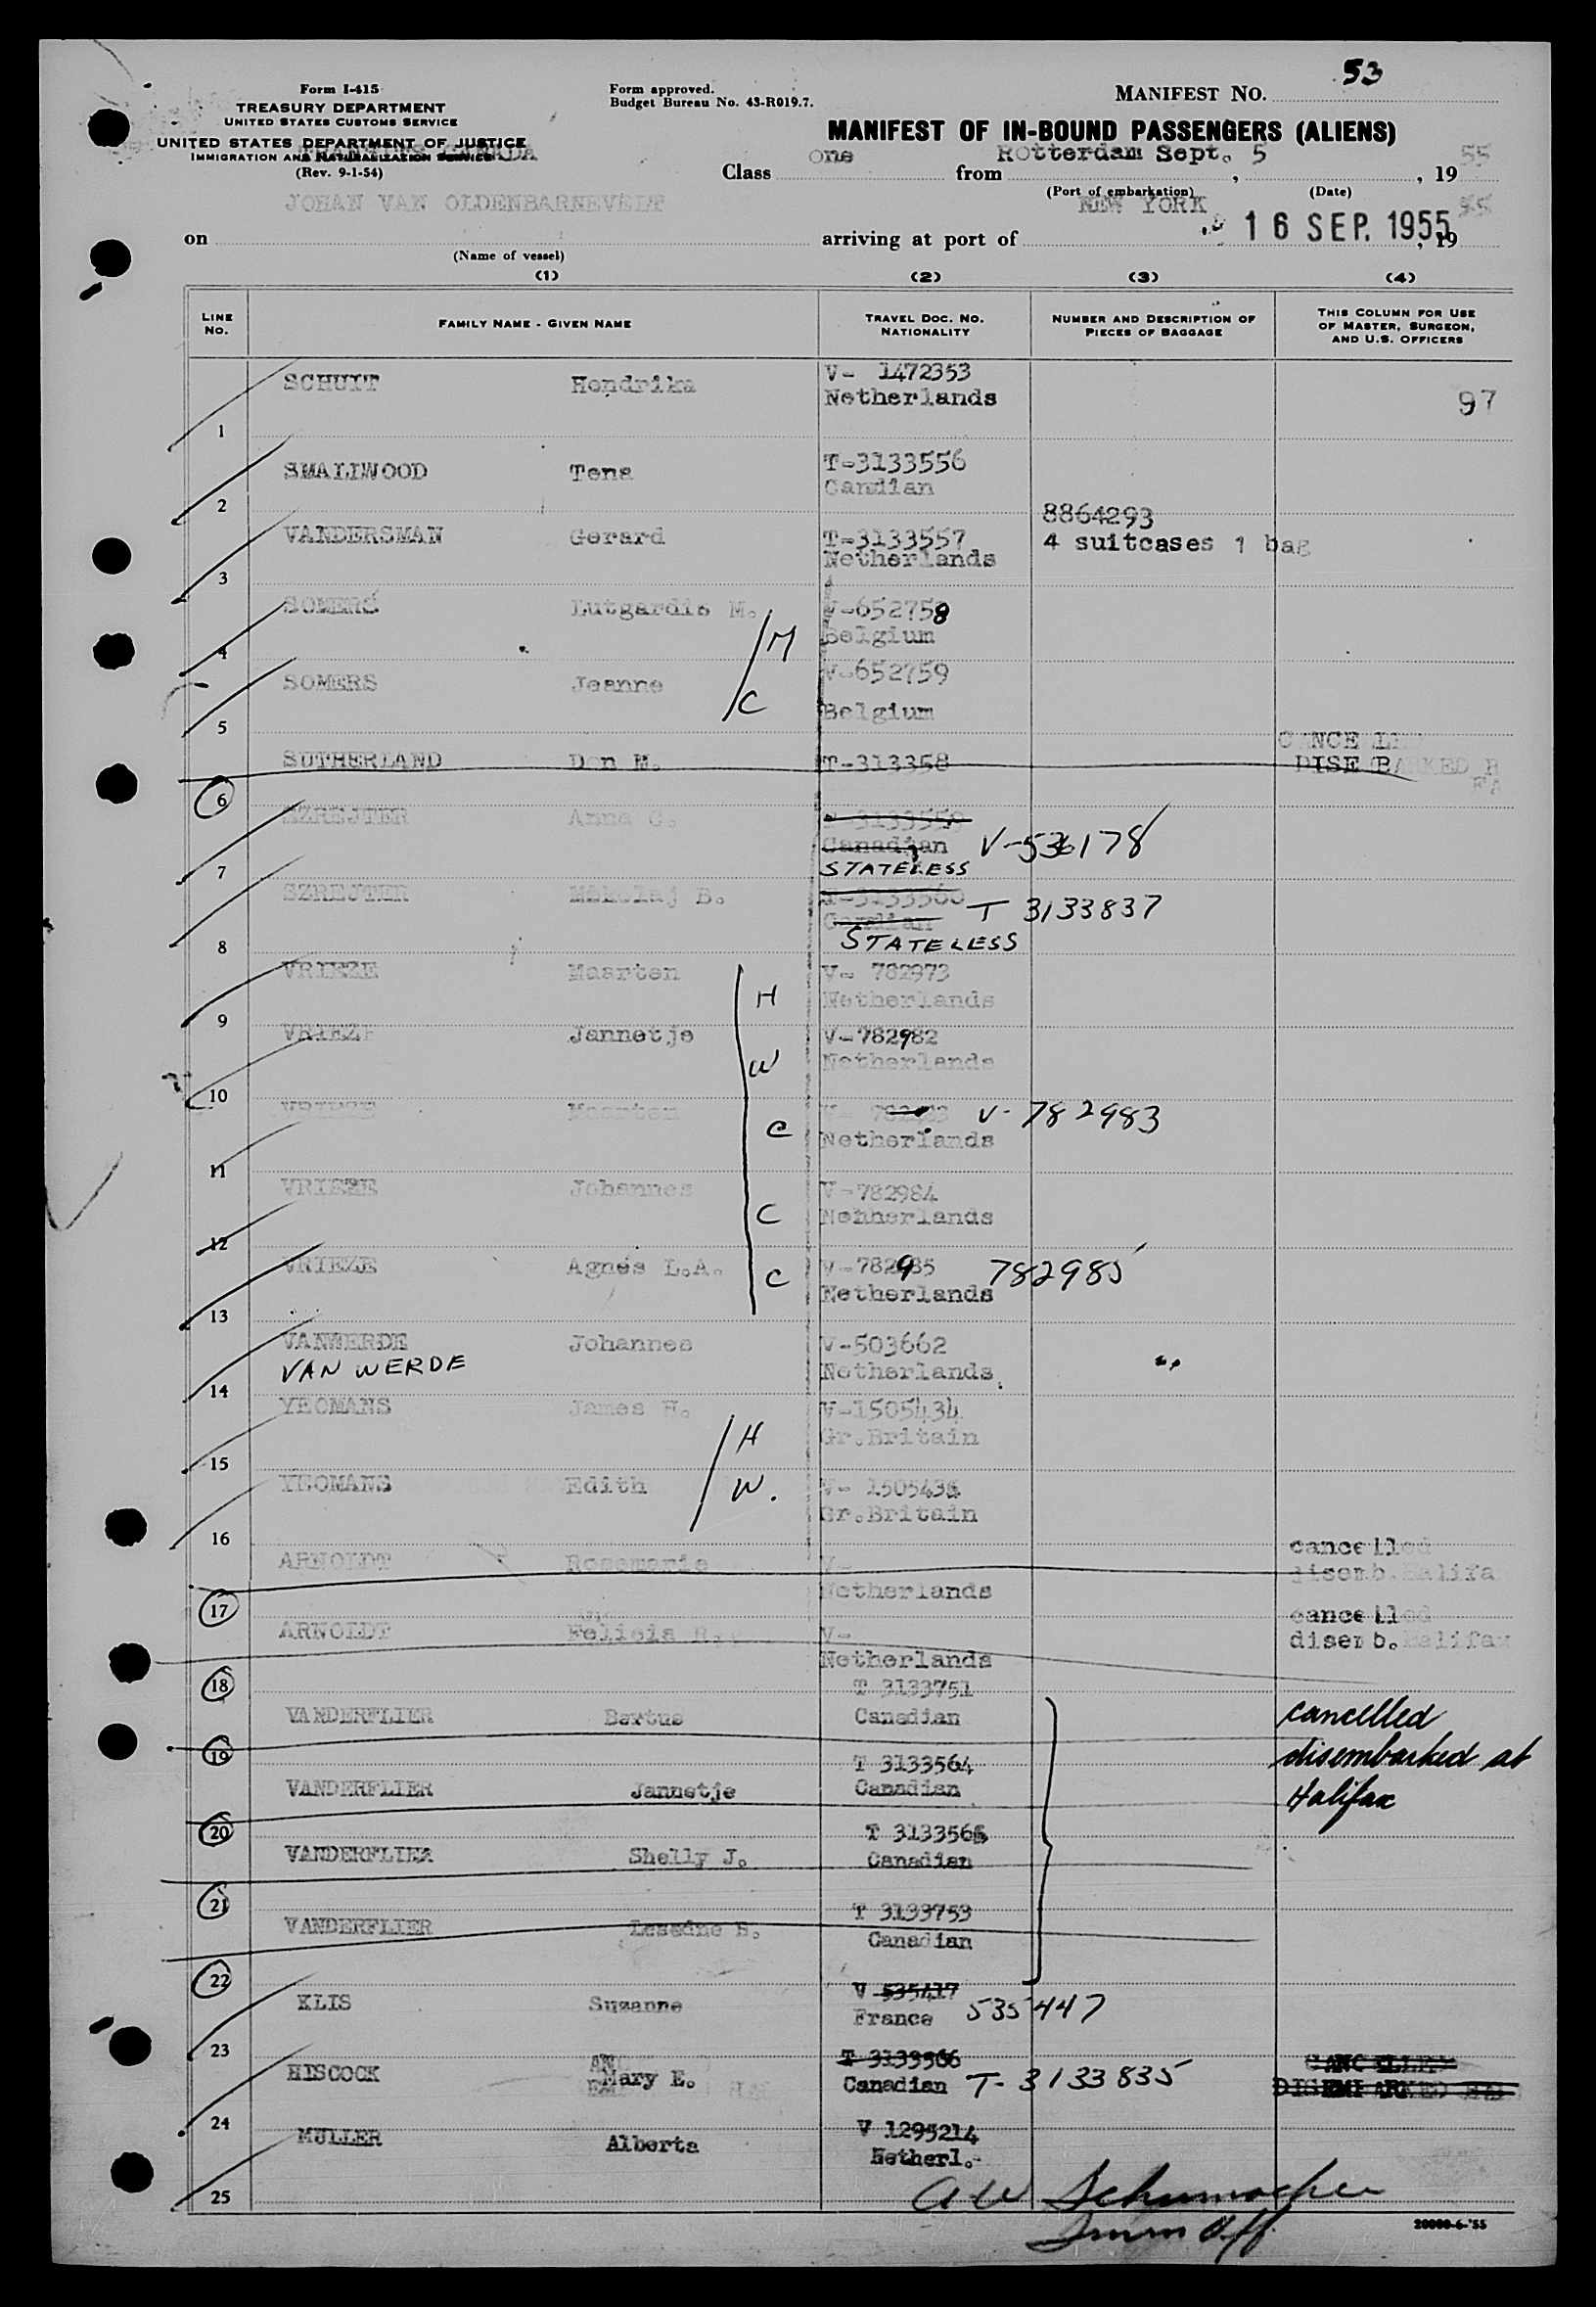 53
Form I-415
Form approved.
MANIFEST NO.
TREASURY DEPARTMENT
Budget Bureau No. 43-R019.7.
UNITED STATES CUSTOMS SERVICE
UNITED STATES DEPARTMENT OF JUSTICE
MANIFEST OF IN-BOUND PASSENGERS (ALIENS)
IMMIGRATION AND NATURALIZATION SERVICE
(Rev. 9-1-54)
Class one from Rotterdam Sept. 5, 1955
(Port of embarkation) (Date)
JOHAN VAN OLDENBARNEVELT
NEW YORK
on arriving at port of 16 SEP. 1955, 19 55
(Name of vessel)
(1) (2) (3) (4)
LINE NO.
FAMILY NAME - GIVEN NAME
TRAVEL DOC. NO. NATIONALITY
NUMBER AND DESCRIPTION OF PIECES OF BAGGAGE
THIS COLUMN FOR USE OF MASTER, SURGEON, AND U.S. OFFICERS
SCHUIT Hendrika V- 1472353
Netherlands
97
1
SMALLWOOD Tena T-3133556
Candian
2
8864293
VANDERSMAN Gerard T-3133557 4 suitcases 1 bag
Netherlands
3
SOMERS Lutgardis M. V-652758
M Belgium
4
SOMERS Jeanne V-652759
C Belgium
5
CANCE L
SUTHERLAND Don M. T-313358 DISE BARKED
6
SZREJTER Anna C. T-3133559
Canadian V-536178
STATELESS
7
SZREJTER B. T-3133560 T 3133837
Candian
STATELESS
8
VRIEZE Maarten V- 782973
H Netherlands
9
VRIEZE Jannetje V-782982
W Netherlands
10
VRIEZE Maarten V- V-782983
C Netherlands
11
VRIEZE Johannes V-782984
C Nehherlands
12
VRIEZE Agnes L.A. V-782985 782985
C Netherlands
13
VANWERDE Johannes V-503662
VAN WERDE Netherlands
14
YEOMANS James H. V-1505434
H Gr.Britain
15
YEOMANS Edith W. V- 150543
Gr.Britain
16
cancelled
ARNOLDT Rosemarie V- disemb. Halifa
Netherlands
17
cancelled
ARNOLDT Felicia V- disemb. Halifax
Netherlands
18
T 3133751
VANDERFLIER Bartus Canadian cancelled
19
T 3133564 disembarked at
VANDERFLIER Jannetje Canadian Halifax
20
T 313356
VANDERFLIER Shelly J. Canadian
21
T 3133753
VANDERFLIER Canadian
22
V 535417
KLIS Suzanne France 535447
23
T 3133566 CANCELLED
HISCOCK Mary E. Canadian T-3133835 DISEMBARKED
24
V 1295214
MULLER Alberta Netherl.
25
A W Schumacher
Imm Off.
20000-6-'55